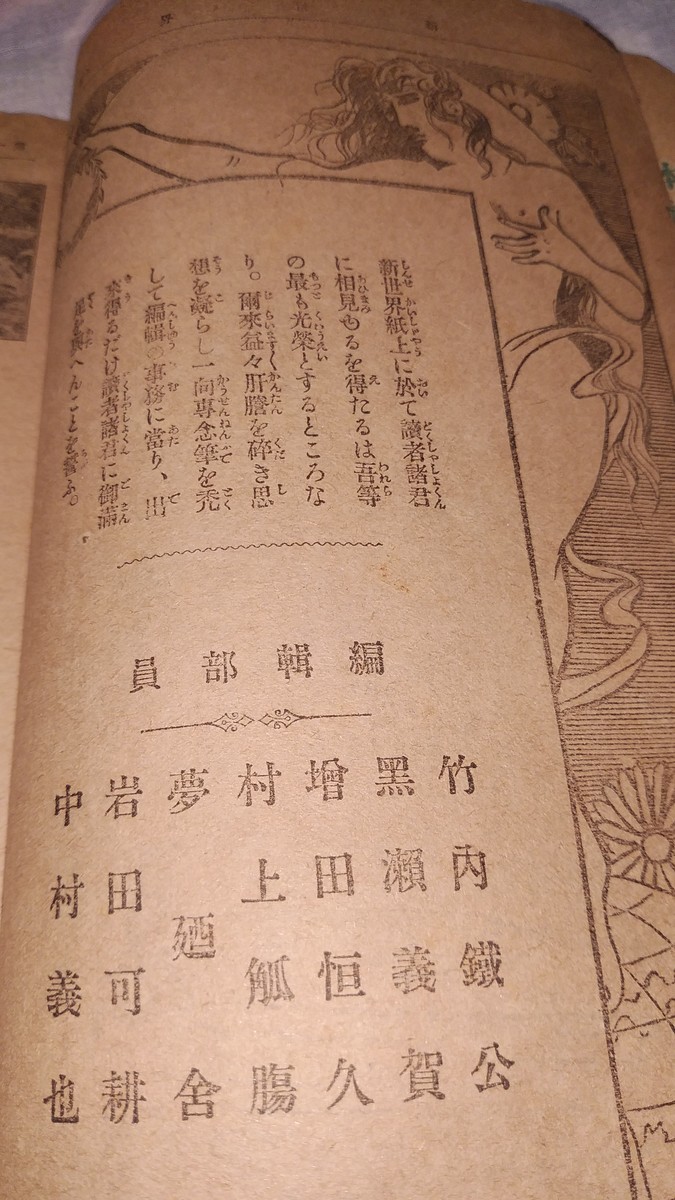 新世界紙上に於て讀者諸君
に相見ゆるを得たるは吾等
の最も光榮とするところな
り。爾來益々肝膽を碎き思
想を凝らし一向專念筆を禿
して編輯の事務に當り、出
來得るだけ讀者諸君に御滿
足を與へんことを誓ふ。
編輯部員
竹內鐵公
黑瀨義賀
增田恒久
村上觚膓
夢廼舍
岩田可耕
中村義也